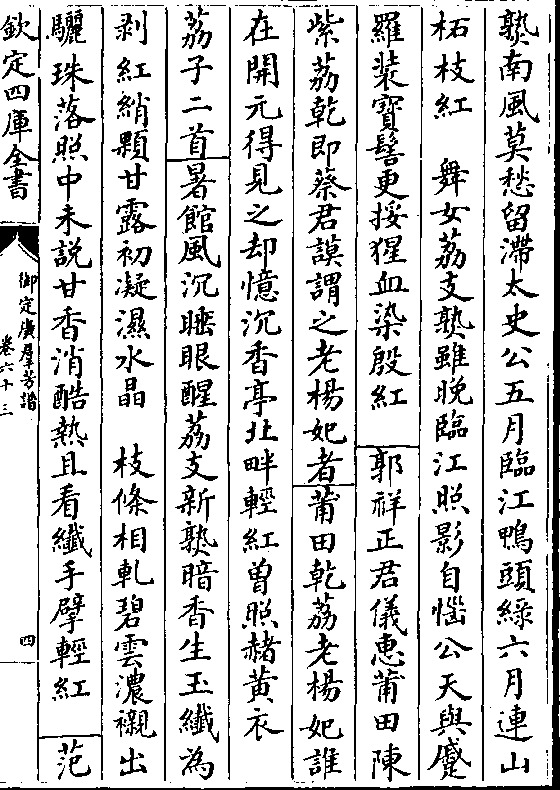 熟南風莫愁留滯太史公五月臨江鴨頭綠六月連山
柘枝紅　舞女荔支熟雖晚臨江照影自惱公天與蹙
羅裝寶髻更挼猩血染殷紅　郭祥正君儀惠莆田陳
紫荔乾即蔡君謨謂之老楊妃者莆田乾荔老楊妃誰
在開元得見之却憶沉香亭北畔輕紅曽照赭黃衣
荔子二首暑館風沉睡眼醒荔支新熟暗香生玉纖為
剥紅綃顆甘露初凝濕水晶　枝條相軋碧雲濃襯出
驪珠落照中未説甘香消酷熱且看纖手擘輕紅　范
欽定四庫全書
御定廣羣芳譜
卷六十三
四